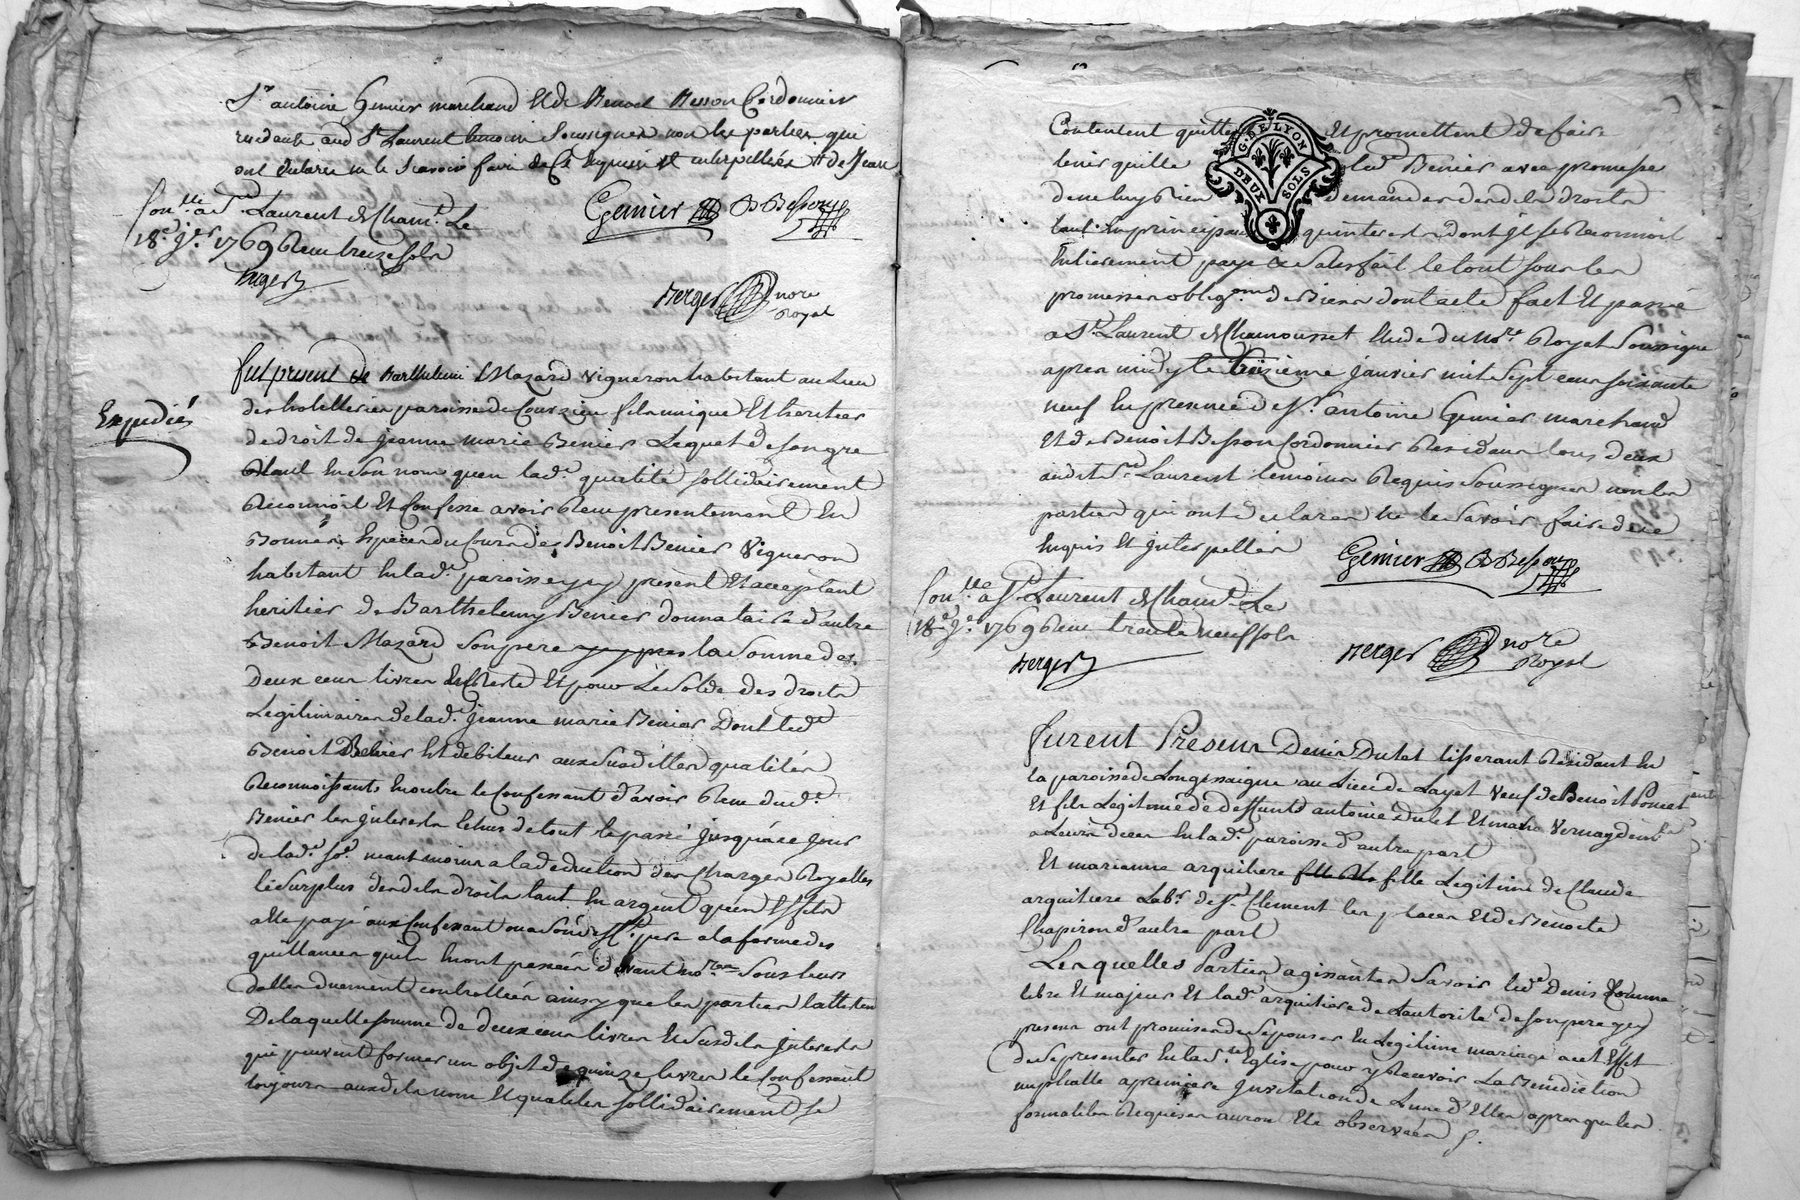 Sr antoine Genier marchand Et de Benoit Besson Cordonnier
residants aud St Laurent temoins Soussignes non les parties qui
ont declaré ne le scavoir faire de ce Enquis et interpellées
Conlle a St Laurent de Chamt Le
18e Jer 1769 Recu treize sols
Berger
Genier B Besson
Berger nore
Royal
Expediés
fut present Barthelemi Mazard vigneron habitant au Lieu
des hotelleries paroisse de Courzieu fils unique Et heritier
de droit de jeanne marie Benier Lequel de son gre
tant En son nom qu'en lade qualité sollidairement
Reconnoit Et Confesse avoir Recu presentement En
Bonnes Especes du Cours de Benoit Benier Vigneron
habitant En lade paroisse yci present Et acceptant
heritier de Barthelemy Benier donnataire d'autre
Benoit Mazard son pere la somme de
deux cens livres de Reste Et pour Le solde des droits
Legitimaires de lade jeanne marie Benier Dont led
Benoit Benier Est debiteur aux susdittes qualités
Reconnoissant En outre le Confessant d'avoir Recu dud
Benier les interets Echus de tout le passé jusqu'a ce jour
de lade so.e neantmoins a la deduction des Charges Royalles
le surplus desdits droits tant En argent qu'en Effets
a Eté payé aux Confessant ou a son pere a la forme des
quittances qu'ils En ont passées devant no.res sous leurs
dattes duement controllées ainsy que les parties l'attestent
De laquelle somme de deux cens livres Et susdits interets
qui peuvent former un objet de quinze livres le Confessant
toujours auxdits nom Et qualités sollidairement se
G. DE LYON
DEUX SOLS
Contentent quitte Et promettent de faire
tenir quitte led Benier avec promesse
de ne luy rien demander desdits droits
tant En principal qu'interets dont il se Reconnoit
Entierement payé Et satisfait le tout sous les
promesses oblig.ons de Biens dont acte fait Et passé
a St Laurent de Chamousset Etude du No.re Royal Soussigné
apres midy le treizieme janvier mil sept cens soixante
neuf En presence de Sr antoine Genier marchand
Et de Benoit Besson Cordonnier Residans tous deux
audit St Laurent temoins Requis Soussignes non les
parties qui ont declaré ne le savoir faire de ce
Enquis Et interpellés
Genier B Besson
Conlle a St Laurent de Chamt Le
18e Je 1769 Recu trente neuf sols
Berger
Berger nore
Royal
furent Presens Denis Dutel tisserant Residant En
la paroisse de Longessaigne au Lieu de Layet Veuf de Benoit Poncet
Et fils Legitime de deffunts antoine Dutel Et marie Vernay
a Leurs deces En lade paroisse d'autre part
Et marianne arquitiere fille Legitime de Claude
arquitiere Labr de St Clement les places Et de Benoite
Chapiron d'autre part
Lesquelles Parties agissantes Savoir led Denis comme
libre Et majeur Et lade arquitiere de L'autorité de son pere yci
present ont promis de s'Epouser En Legitime mariage a cet Effet
de se presenter En la Ste Eglise pour y Recevoir La Benediction
nuptialle a premiere Invitation de L'une d'Elles apres que les
formalités Requises auront Eté observées